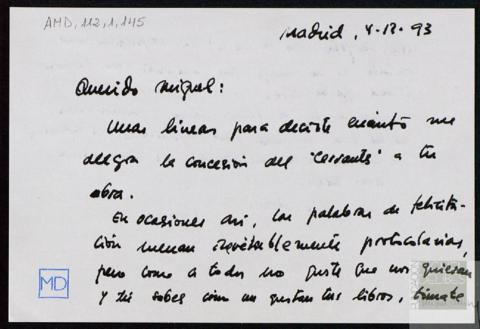 AMD, 112, 1, 145
Madrid, 4-12-93
Querido Miguel:
Unas líneas para decirte cuánto me
alegra la concesión del "Cervantes" a tu
obra.
En ocasiones así, las palabras de felicita-
ción suenan inevitablemente protocolarias,
pero como a todos nos gusta que nos quieran
y tú sabes cómo me gustan tus libros, tómate
MD